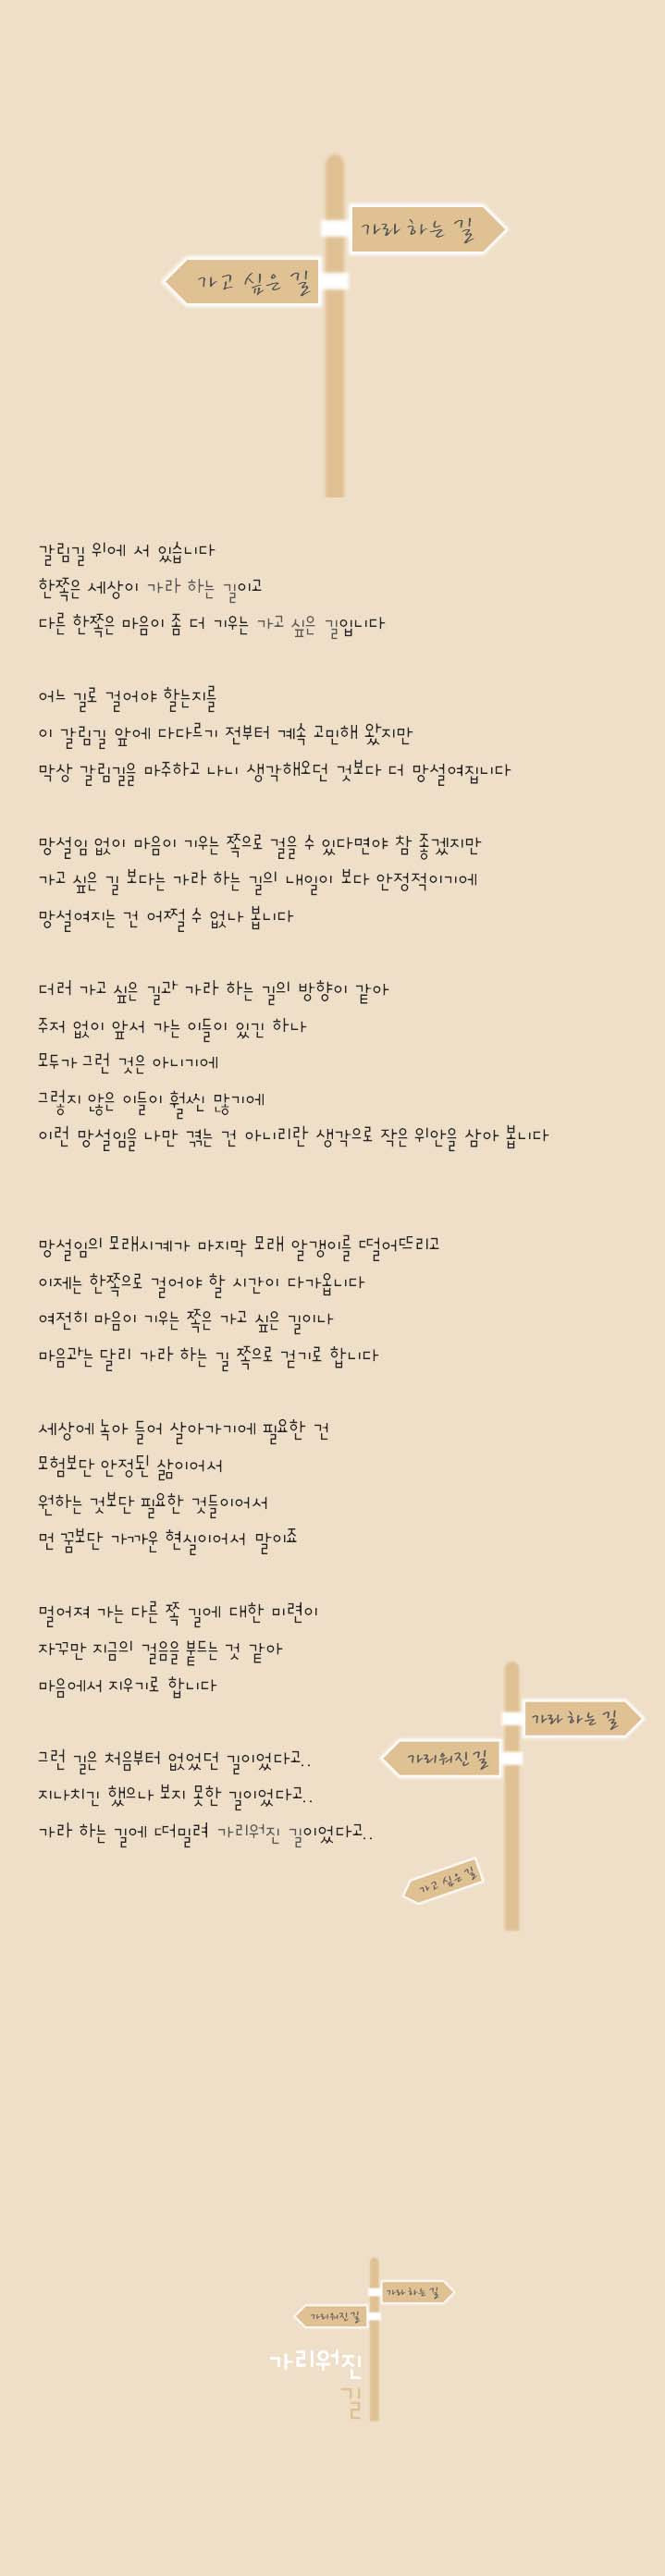 가라 하는 길
가고 싶은 길
갈림길 위에 서 있습니다
한쪽은 세상이 가라 하는 길이고
다른 한쪽은 마음이 좀 더 기우는 가고 싶은 길입니다
어느 길로 걸어야 할는지를
이 갈림길 앞에 다다르기 전부터 계속 고민해 왔지만
막상 갈림길을 마주하고 나니 생각해오던 것보다 더 망설여집니다
망설임 없이 마음이 기우는 쪽으로 걸을 수 있다면야 참 좋겠지만
가고 싶은 길 보다는 가라 하는 길의 내일이 보다 안정적이기에
망설여지는 건 어쩔 수 없나 봅니다
더러 가고 싶은 길과 가라 하는 길의 방향이 같아
주저 없이 앞서 가는 이들이 있긴 하나
모두가 그런 것은 아니기에
그렇지 않은 이들이 훨씬 많기에
이런 망설임을 나만 겪는 건 아니리란 생각으로 작은 위안을 삼아 봅니다
망설임의 모래시계가 마지막 모래 알갱이를 떨어뜨리고
이제는 한쪽으로 걸어야 할 시간이 다가옵니다
여전히 마음이 기우는 쪽은 가고 싶은 길이나
마음과는 달리 가라 하는 길 쪽으로 걷기로 합니다
세상에 녹아 들어 살아가기에 필요한 건
모험보단 안정된 삶이어서
원하는 것보단 필요한 것들이어서
먼 꿈보단 가까운 현실이어서 말이죠
멀어져 가는 다른 쪽 길에 대한 미련이
자꾸만 지금의 걸음을 붙드는 것 같아
마음에서 지우기로 합니다
가라 하는 길
가리워진 길
그런 길은 처음부터 없었던 길이었다고..
지나치긴 했으나 보지 못한 길이었다고..
가라 하는 길에 떠밀려 가리워진 길이었다고..
가고 싶은 길
가라 하는 길
가리워진 길
가리워진
길